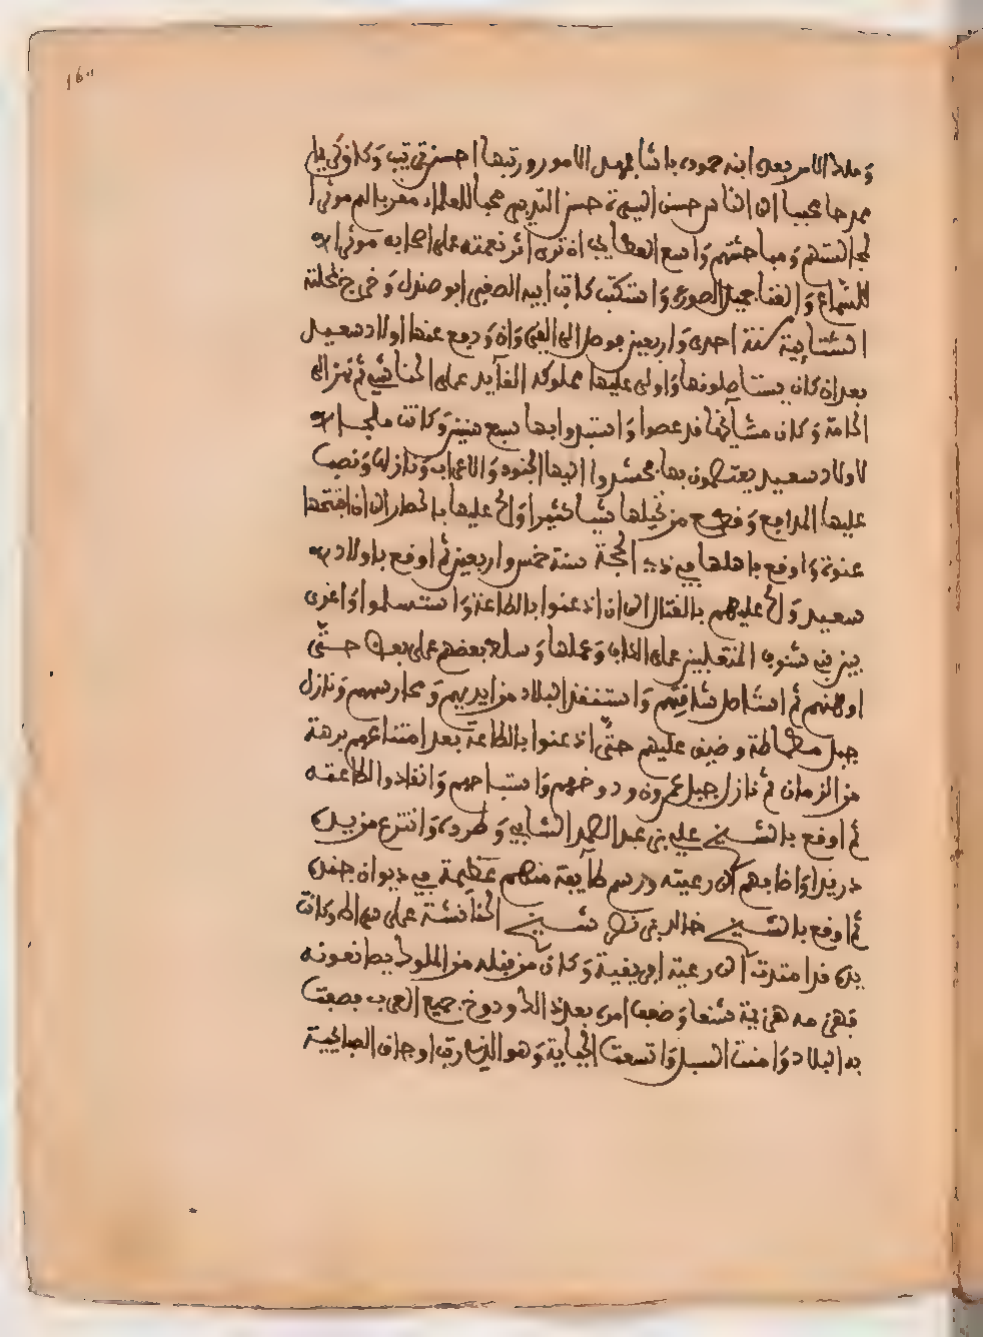 16
وملك الامر بعده ابنه حموده باشا فمهد الامور ورتبها احسن ترتيب وكان
ممدحا محببا الى الناس حسن السيرة حسن التدبير محبا للعلماء مقربا لهم موثرا
لمجالستهم ومباحثتهم واسع العطا يحب ان ترى اثر نعمته على اصحابه موثرا
للسماع والغنا جميل الصورة واستكتب كاتب ابيه الصفي ابو صندل وخرج بمحلته
الشتائية سنة احدى واربعين فوصل الى القيروان ودفع عنها اولاد سعيد
بعد ان كان يستاصلونها واولى عليها مملوكه القايد على الحناشي ثم نزل الى
الحامة وكان مشائخها قد عصوا واستبدوا بها سبع سنين وكانت ملجا
لاولاد سعيد يعتصمون بها فحشدوا اليها الجنود والاعراب ونازلها ونصب
عليها المدافع وقطع من نخيلها شيا كثيرا والح عليها بالحصار الى ان افتتحها
عنوة واوقع باهلها في ذي الحجة سنة خمس واربعين ثم اوقع باولاد
سعيد والح عليهم بالقتال الى ان اذعنوا بالطاعة واستسلموا واغرى
بين بني شنوف المتغلبين على الكاف وعملها وسلط بعضهم على بعض حتى
اوهنهم ثم استاصل شافتهم واستنقذ البلاد من ايديهم ونازل
جبل مطماطة وضيق عليهم حتى اذعنوا بالطاعة بعد امتناعهم برهة
من الزمان ثم نازل جبل عمرون ودوخهم واستباحهم وانقادوا لطاعته
ثم اوقع بالشيخ علي بن عبد الصمد الشابي وطرده وانتزع من يده
دريد واضافهم الى رعيته ورسم طايفة منهم عظيمة في ديوان جنده
ثم اوقع بالشيخ خالد بن نصر شيخ الحنانشة على وكانت
يده قد امتدت الى رعية افريقية وكان من قبله من الملوك يصانعونه
فهزمه هزيمة شنعا وضعف امره بعد ذلك ودوخ جميع العرب فصفت
به البلاد وامنت السبل واتسعت الجباية وهو الذي رتب اوجاق الصبايحية